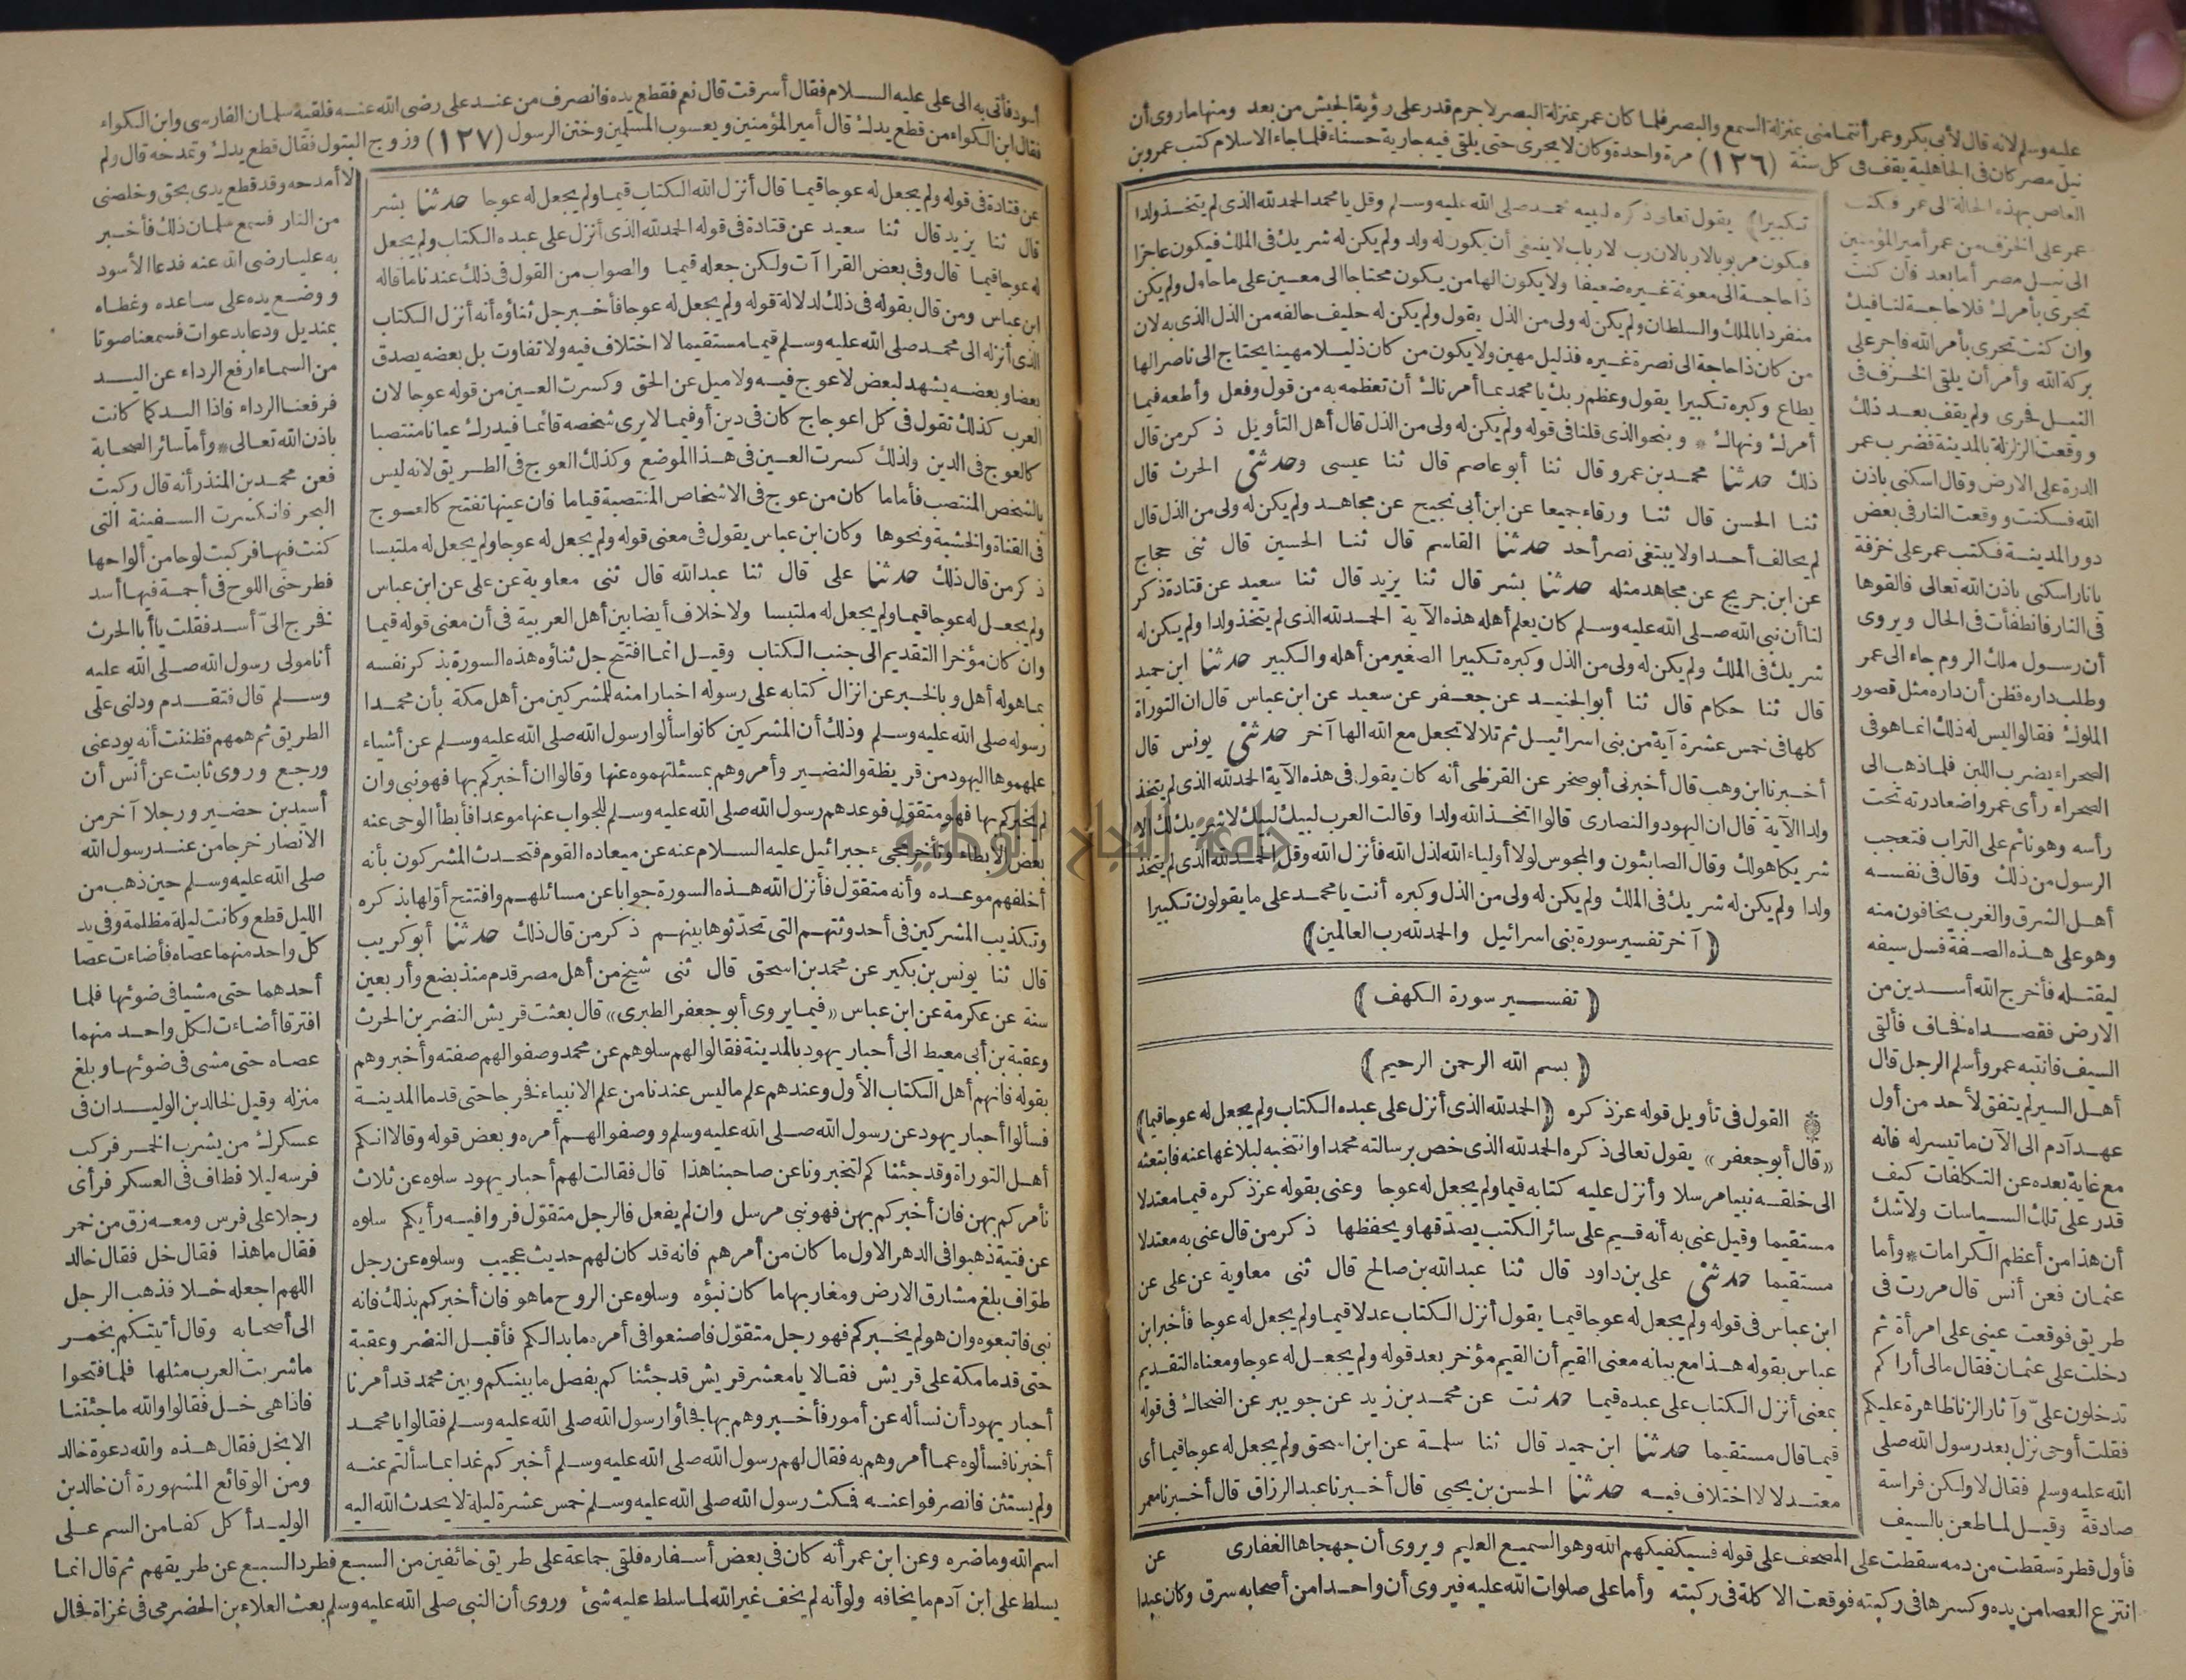 عليه وسلم لانه قال لأبى بكر وعمر أنتما منى بمنزلة السمع والبصر فلما كان عمر بمنزلة البصر لاجرم قدر على رؤية الجيش من بعد ومنها ماروى أن
نيل مصر كان فى الجاهلية يقف فى كل سنة (١٢٦) مرة واحدة وكان لا يجرى حتى يلقى فيه جارية حسناء فلما جاء الاسلام كتب عمرو بن
العاص بهذه الحالة الى عمر فكتب
عمر على الخزف من عمر أمير المؤمنين
الى نيل مصر أما بعد فان كنت
تجرى بأمرك فلا حاجة لنا فيك
وان كنت تجرى بأمر الله فاجر على
بركة الله وأمر أن يلقى الخزف فى
النيل فجرى ولم يقف بعد ذلك
ووقعت الزلزلة بالمدينة فضرب عمر
الدرة على الارض وقال اسكنى باذن
الله فسكنت ووقعت النار فى بعض
دور المدينة فكتب عمر على خزفة
يا نار اسكنى باذن الله تعالى فالقوها
فى النار فانطفأت فى الحال ويروى
أن رسول ملك الروم جاء الى عمر
وطلب داره فظن أن داره مثل قصور
الملوك فقالوا ليس له ذلك انما هو فى
الصحراء يضرب اللبن فلما ذهب الى
الصحراء رأى عمر واضعا درته تحت
رأسه وهو نائم على التراب فتعجب
الرسول من ذلك وقال فى نفسه
أهل الشرق والغرب يخافون منه
وهو على هذه الصفة فسل سيفه
ليقتله فأخرج الله أسدين من
الارض فقصداه فخاف فألقى
السيف فانتبه عمر وأسلم الرجل قال
أهل السير لم يتفق لأحد من أول
عهد آدم الى الآن ما تيسر له فانه
مع غاية بعده عن التكلفات كيف
قدر على تلك السياسات ولا شك
أن هذا من أعظم الكرامات * وأما
عثمان فعن أنس قال مررت فى
طريق فوقعت عينى على امرأة ثم
دخلت على عثمان فقال مالى أراكم
تدخلون علىّ وآثار الزنا ظاهرة عليكم
فقلت أوحى نزل بعد رسول الله صلى
الله عليه وسلم فقال لا ولكن فراسة
صادقة وقيل لما طعن بالسيف
فأول قطرة سقطت من دمه سقطت على المصحف على قوله فسيكفيكهم الله وهو السميع العليم ويروى أن جهجاها الغفارى
انتزع العصا من يده وكسرها فى ركبته فوقعت الاكلة فى ركبته وأما على صلوات الله عليه فيروى أن واحدا من أصحابه سرق وكان عبدا
تكبيرا) يقول تعالى ذكره لنبيه محمد صلى الله عليه وسلم وقل يا محمد الحمد لله الذى لم يتخذ ولدا
فيكون مربوبا لا ربا لان رب الارباب لا ينبغى أن يكون له ولد ولم يكن له شريك فى الملك فيكون عاجزا
ذا حاجة الى معونة غيره ضعيفا ولا يكون الها من يكون محتاجا الى معين على ما حاول ولم يكن
منفردا بالملك والسلطان ولم يكن له ولى من الذل يقول ولم يكن له حليف حالفه من الذل الذى به لان
من كان ذا حاجة الى نصرة غيره فذليل مهين ولا يكون من كان ذليلا مهينا يحتاج الى ناصر الها
يطاع وكبره تكبيرا يقول وعظم ربك يا محمد بما أمرناك أن تعظمه به من قول وفعل وأطعه فيما
أمرك ونهاك * وبنحو الذى قلنا فى قوله ولم يكن له ولى من الذل قال أهل التأويل ذكر من قال
ذلك حدثنا محمد بن عمرو قال ثنا أبو عاصم قال ثنا عيسى وحدثنى الحرث قال
ثنا الحسن قال ثنا ورقاء جميعا عن ابن أبى نجيح عن مجاهد ولم يكن له ولى من الذل قال
لم يحالف أحدا ولا يبتغى نصر أحد حدثنا القاسم قال ثنا الحسين قال ثنى حجاج
عن ابن جريج عن مجاهد مثله حدثنا بشر قال ثنا يزيد قال ثنا سعيد عن قتادة ذكر
لنا أن نبى الله صلى الله عليه وسلم كان يعلم أهله هذه الآية الحمد لله الذى لم يتخذ ولدا ولم يكن له
شريك فى الملك ولم يكن له ولى من الذل وكبره تكبيرا الصغير من أهله والكبير حدثنا ابن حميد
قال ثنا حكام قال ثنا أبو الجنيد عن جعفر عن سعيد عن ابن عباس قال ان التوراة
كلها فى خمس عشرة آية من بنى اسرائيل ثم تلا لا تجعل مع الله الها آخر حدثنى يونس قال
أخبرنا ابن وهب قال أخبرنى أبو صخر عن القرظى أنه كان يقول فى هذه الآية الحمد لله الذى لم يتخذ
ولدا الآية قال ان اليهود والنصارى قالوا اتخذ الله ولدا وقالت العرب لبيك لبيك لا شريك لك الا
شريكا هو لك وقال الصابئون والمجوس لولا أولياء الله لذل الله فأنزل الله وقل الحمد لله الذى لم يتخذ
ولدا ولم يكن له شريك فى الملك ولم يكن له ولى من الذل وكبره أنت يا محمد على ما يقولون تكبيرا
(آخر تفسير سورة بنى اسرائيل والحمد لله رب العالمين)
(تفسير سورة الكهف)
(بسم الله الرحمن الرحيم)
القول فى تأويل قوله عز ذكره (الحمد لله الذى أنزل على عبده الكتاب ولم يجعل له عوجا قيما)
«قال أبو جعفر» يقول تعالى ذكره الحمد لله الذى خص برسالته محمدا وانتخبه لبلاغها عنه فابتعثه
الى خلقه نبيا مرسلا وأنزل عليه كتابه قيما ولم يجعل له عوجا وعنى بقوله عز ذكره قيما معتدلا
مستقيما وقيل عنى به أنه قيم على سائر الكتب يصدّقها ويحفظها ذكر من قال عنى به معتدلا
مستقيما حدثنى على بن داود قال ثنا عبد الله بن صالح قال ثنى معاوية عن على عن
ابن عباس فى قوله ولم يجعل له عوجا قيما يقول أنزل الكتاب عدلا قيما ولم يجعل له عوجا فأخبر ابن
عباس بقوله هذا مع بيانه معنى القيم أن القيم مؤخر بعد قوله ولم يجعل له عوجا ومعناه التقديم
بمعنى أنزل الكتاب على عبده قيما حدثت عن محمد بن زيد عن جويبر عن الضحاك فى قوله
قيما قال مستقيما حدثنا ابن حميد قال ثنا سلمة عن ابن اسحق ولم يجعل له عوجا قيما أى
معتدلا لا اختلاف فيه حدثنا الحسن بن يحيى قال أخبرنا عبد الرزاق قال أخبرنا معمر
عن
أسود فأتى به الى على عليه السلام فقال أسرقت قال نعم فقطع يده فانصرف من عند على رضى الله عنه فلقيه سلمان الفارسى وابن الكواء
فقال ابن الكواء من قطع يدك قال أمير المؤمنين ويعسوب المسلمين وختن الرسول (١٢٧) وزوج البتول فقال قطع يدك وتمدحه قال ولم
لا أمدحه وقد قطع يدى بحق وخلصنى
من النار فسمع سلمان ذلك فأخبر
به عليا رضى الله عنه فدعا الأسود
ووضع يده على ساعده وغطاه
بمنديل ودعا بدعوات فسمعنا صوتا
من السماء ارفع الرداء عن اليد
فرفعنا الرداء فاذا اليد كما كانت
باذن الله تعالى * وأما سائر الصحابة
فعن محمد بن المنذر أنه قال ركبت
البحر فانكسرت السفينة التى
كنت فيها فركبت لوحا من ألواحها
فطرحنى اللوح فى أجمة فيها أسد
فخرج الىّ أسد فقلت يا أبا الحرث
أنا مولى رسول الله صلى الله عليه
وسلم قال فتقدم ودلنى على
الطريق ثم همهم فظننت أنه يودعنى
ورجع وروى ثابت عن أنس أن
أسيد بن حضير ورجلا آخر من
الأنصار خرجا من عند رسول الله
صلى الله عليه وسلم حين ذهب من
الليل قطع وكانت ليلة مظلمة وفى يد
كل واحد منهما عصاه فأضاءت عصا
أحدهما حتى مشيا فى ضوئها فلما
افترقا أضاءت لكل واحد منهما
عصاه حتى مشى فى ضوئها وبلغ
منزله وقيل لخالد بن الوليد ان فى
عسكرك من يشرب الخمر فركب
فرسه ليلا فطاف فى العسكر فرأى
رجلا على فرس ومعه زق من خمر
فقال ما هذا فقال خل فقال خالد
اللهم اجعله خلا فذهب الرجل
الى أصحابه وقال أتيتكم بخمر
ما شربت العرب مثلها فلما فتحوا
فاذا هى خل فقالوا والله ما جئتنا
الا بخل فقال هذه والله دعوة خالد
ومن الوقائع المشهورة أن خالد بن
الوليد أكل كفا من السم على
اسم الله وما ضره وعن ابن عمر أنه كان فى بعض أسفاره فلقى جماعة على طريق خائفين من السبع فطرد السبع عن طريقهم ثم قال انما
يسلط على ابن آدم ما يخافه ولو أنه لم يخف غير الله لما سلط عليه شئ وروى أن النبى صلى الله عليه وسلم بعث العلاء بن الحضرمى فى غزاة فحال
عن قتادة فى قوله ولم يجعل له عوجا قيما قال أنزل الله الكتاب قيما ولم يجعل له عوجا حدثنا بشر
قال ثنا يزيد قال ثنا سعيد عن قتادة فى قوله الحمد لله الذى أنزل على عبده الكتاب ولم يجعل
له عوجا قيما قال وفى بعض القراآت ولكن جعله قيما والصواب من القول فى ذلك عندنا ما قاله
ابن عباس ومن قال بقوله فى ذلك لدلالة قوله ولم يجعل له عوجا فأخبر جل ثناؤه أنه أنزل الكتاب
الذى أنزله الى محمد صلى الله عليه وسلم قيما مستقيما لا اختلاف فيه ولا تفاوت بل بعضه يصدق
بعضا وبعضه يشهد لبعض لا عوج فيه ولا ميل عن الحق وكسرت العين من قوله عوجا لان
العرب كذلك تقول فى كل اعوجاج كان فى دين أو فيما لا يرى شخصه قائما فيدرك عيانا منتصبا
كالعوج فى الدين ولذلك كسرت العين فى هذا الموضع وكذلك العوج فى الطريق لانه ليس
بالشخص المنتصب فأما ما كان من عوج فى الاشخاص المنتصبة قياما فان عينها تفتح كالعوج
فى القناة والخشبة ونحوها وكان ابن عباس يقول فى معنى قوله ولم يجعل له عوجا ولم يجعل له ملتبسا
ذكر من قال ذلك حدثنا على قال ثنا عبد الله قال ثنى معاوية عن على عن ابن عباس
ولم يجعل له عوجا قيما ولم يجعل له ملتبسا ولا خلاف أيضا بين أهل العربية فى أن معنى قوله قيما
وان كان مؤخرا التقديم الى جنب الكتاب وقيل انما افتتح جل ثناؤه هذه السورة بذكر نفسه
بما هو له أهل وبالخبر عن انزال كتابه على رسوله اخبارا منه للمشركين من أهل مكة بأن محمدا
رسوله صلى الله عليه وسلم وذلك أن المشركين كانوا سألوا رسول الله صلى الله عليه وسلم عن أشياء
علمهموها اليهود من قريظة والنضير وأمروهم بمسئلتهموه عنها وقالوا ان أخبركم بها فهو نبى وان
لم يخبركم بها فهو متقوّل فوعدهم رسول الله صلى الله عليه وسلم للجواب عنها موعدا فأبطأ الوحى عنه
بعض الابطاء وتأخر مجىء جبرائيل عليه السلام عنه عن ميعاده القوم فتحدث المشركون بأنه
أخلفهم موعده وأنه متقوّل فأنزل الله هذه السورة جوابا عن مسائلهم وافتتح أوّلها بذكره
وتكذيب المشركين فى أحدوثتهم التى تحدّثوها بينهم ذكر من قال ذلك حدثنا أبو كريب
قال ثنا يونس بن بكير عن محمد بن اسحق قال ثنى شيخ من أهل مصر قدم منذ بضع وأربعين
سنة عن عكرمة عن ابن عباس «فيما يروى أبو جعفر الطبرى» قال بعثت قريش النضر بن الحرث
وعقبة بن أبى معيط الى أحبار يهود بالمدينة فقالوا لهم سلوهم عن محمد وصفوا لهم صفته وأخبروهم
بقوله فانهم أهل الكتاب الأول وعندهم علم ما ليس عندنا من علم الانبياء فخرجا حتى قدما المدينة
فسألوا أحبار يهود عن رسول الله صلى الله عليه وسلم ووصفوا لهم أمره وبعض قوله وقالا انكم
أهل التوراة وقد جئناكم لتخبرونا عن صاحبنا هذا قال فقالت لهم أحبار يهود سلوه عن ثلاث
نأمركم بهن فان أخبركم بهن فهو نبى مرسل وان لم يفعل فالرجل متقوّل فروا فيه رأيكم سلوه
عن فتية ذهبوا فى الدهر الاول ما كان من أمرهم فانه قد كان لهم حديث عجيب وسلوه عن رجل
طوّاف بلغ مشارق الارض ومغاربها ما كان نبؤه وسلوه عن الروح ما هو فان أخبركم بذلك فانه
نبى فاتبعوه وان هو لم يخبركم فهو رجل متقوّل فاصنعوا فى أمره ما بدا لكم فأقبل النضر وعقبة
حتى قدما مكة على قريش فقالا يا معشر قريش قد جئناكم بفصل ما بينكم وبين محمد قد أمرنا
أحبار يهود أن نسأله عن أمور فأخبروهم بها فجاؤا رسول الله صلى الله عليه وسلم فقالوا يا محمد
أخبرنا فسألوه عما أمروهم به فقال لهم رسول الله صلى الله عليه وسلم أخبركم غدا بما سألتم عنه
ولم يستثن فانصرفوا عنه فمكث رسول الله صلى الله عليه وسلم خمس عشرة ليلة لا يحدث الله اليه
جامعة النجاح الوطنية